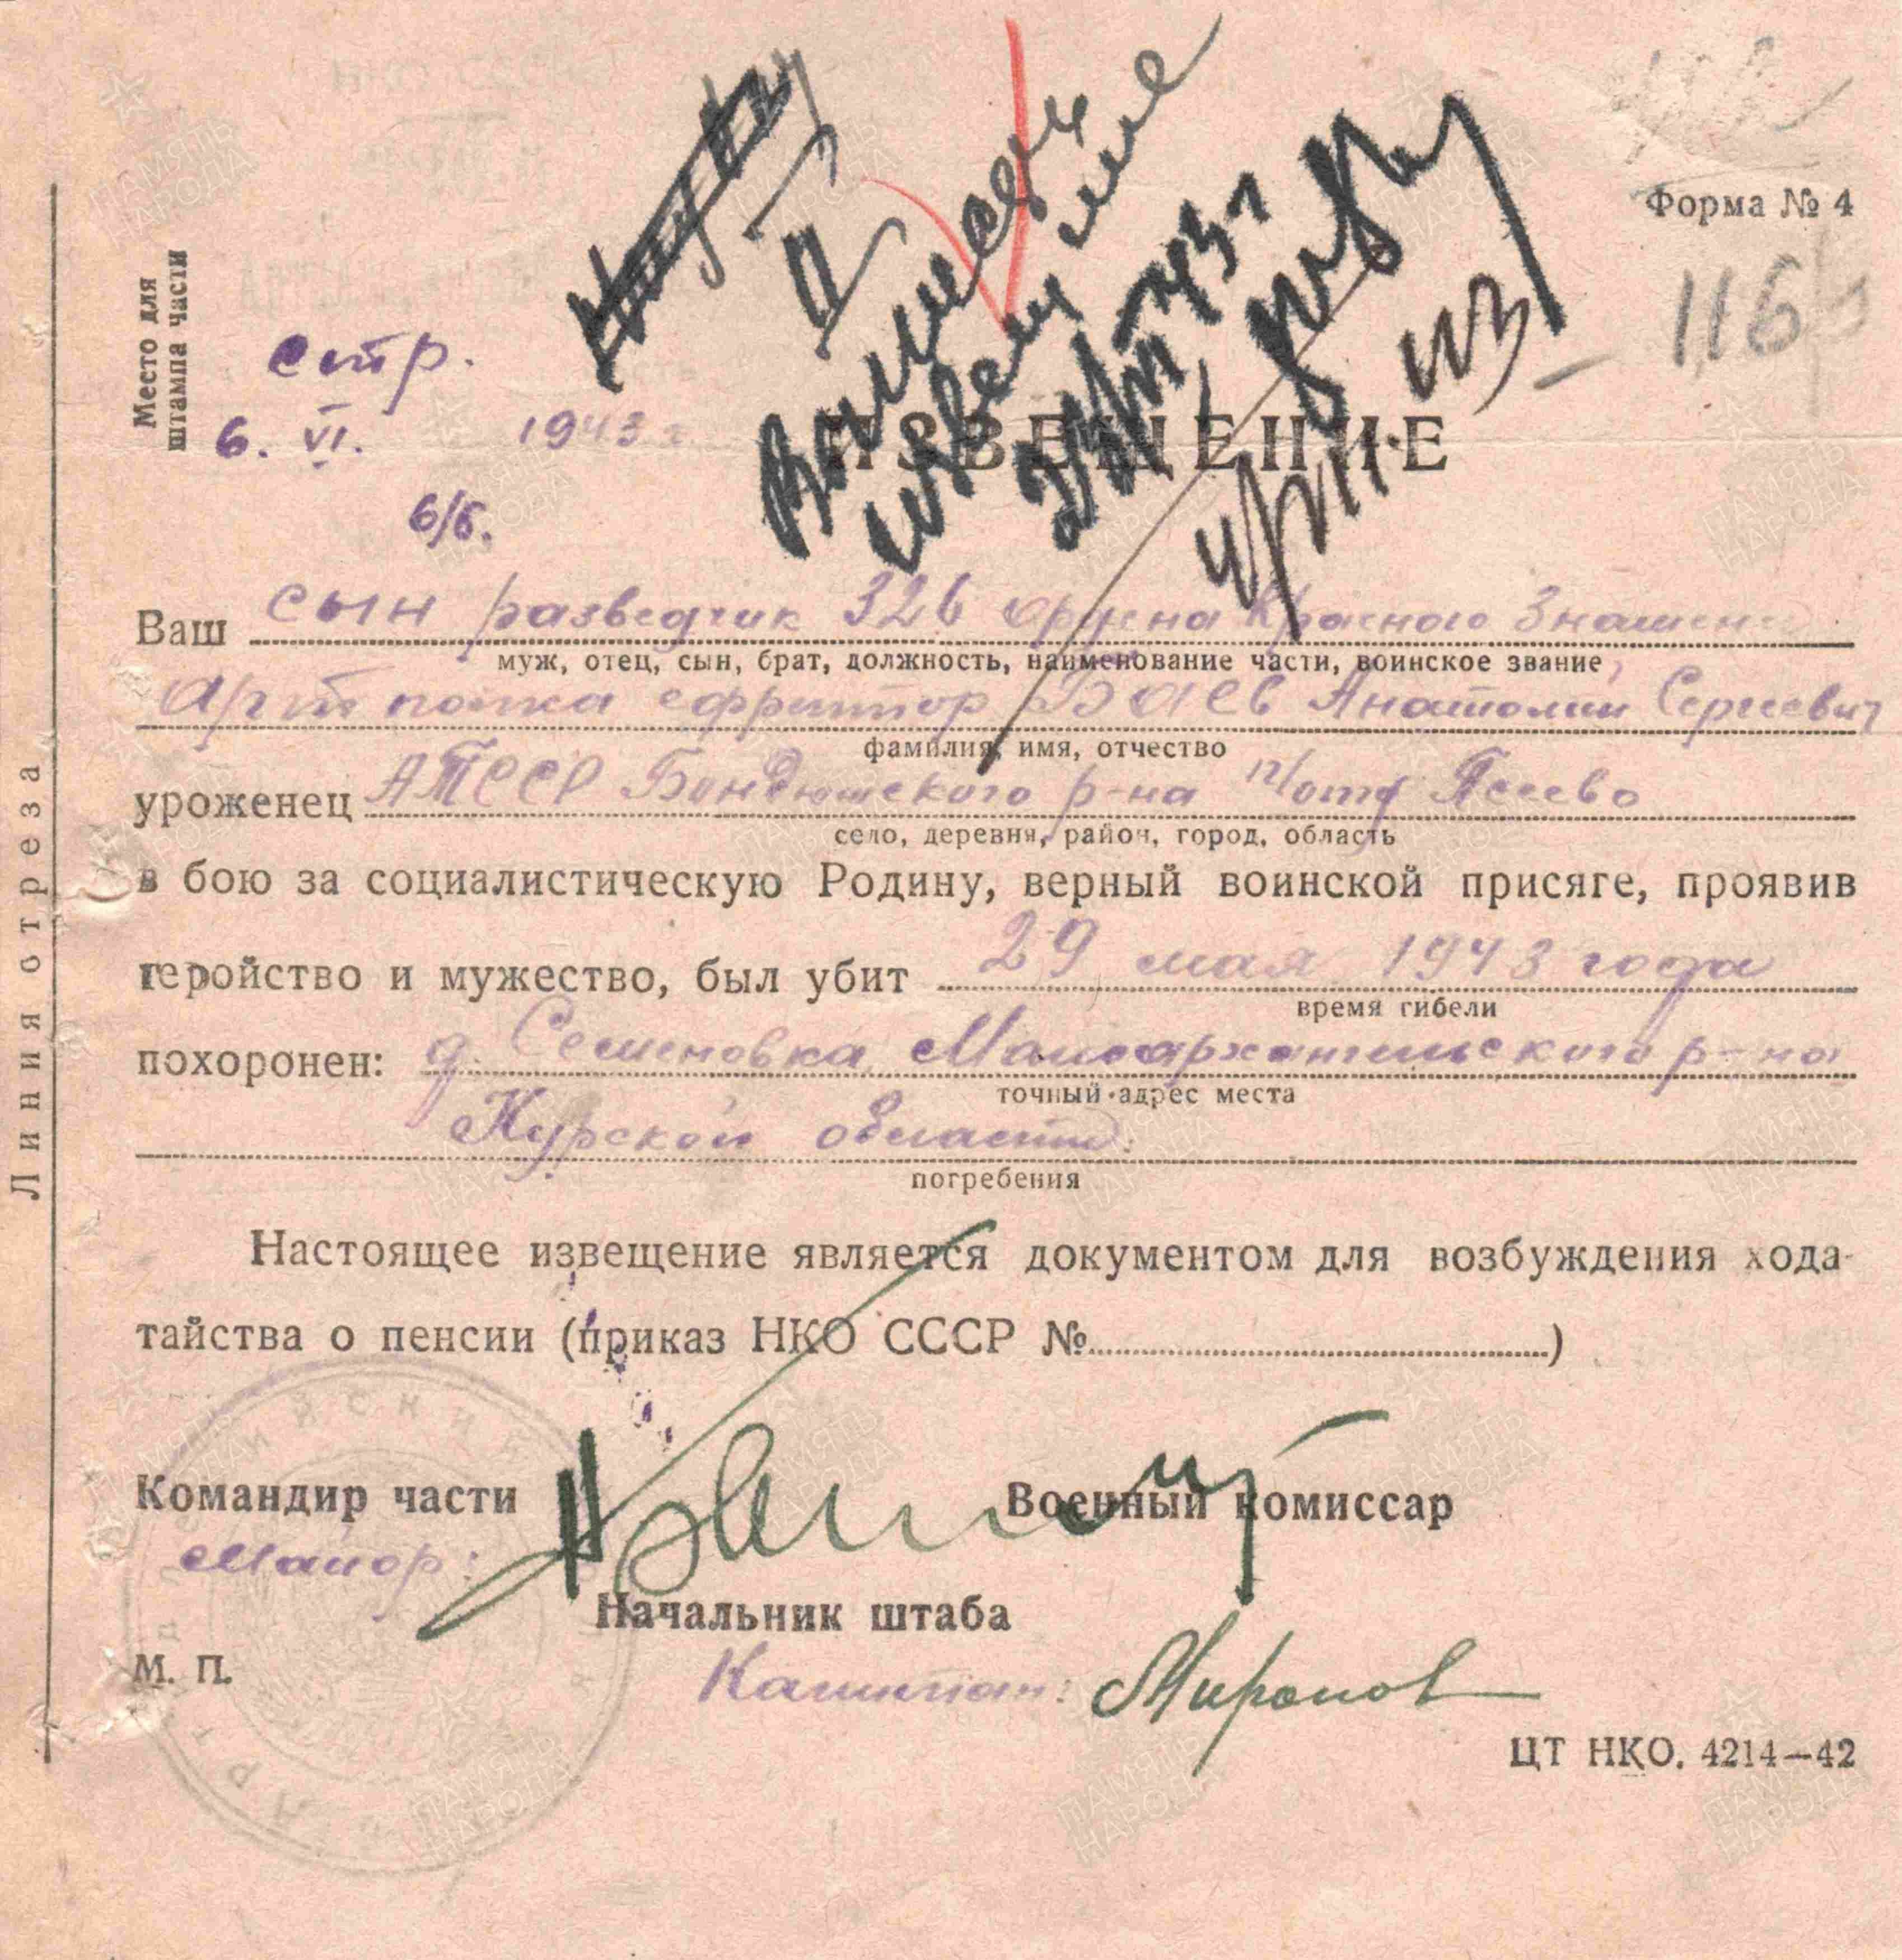 Форма № 4
116
Место для
штампа части
стр.
6. VI. 1943 г.
ИЗВЕЩЕНИЕ
6/6.
Ваш сын разведчик 326 ордена Красного Знамени
муж, отец, сын, брат, должность, наименование части, воинское звание
Арт полка ефрейтор БАЕВ Анатолий Сергеевич
фамилия, имя, отчество
уроженец АТССР Бондюшского р-на
село, деревня, район, город, область
в бою за социалистическую Родину, верный воинской присяге, проявив
геройство и мужество, был убит 29 мая 1943 года
время гибели
похоронен: д. Семеновка, Малоархангельского р-на
точный адрес места
Курской области.
погребения
Настоящее извещение является документом для возбуждения хода-
тайства о пенсии (приказ НКО СССР № )
Командир части
Военный комиссар
Майор:
Начальник штаба
М. П.
Капитан: Миронов
ЦТ НКО. 4214—42
Линия отреза
ПАМЯТЬ
НАРОДА